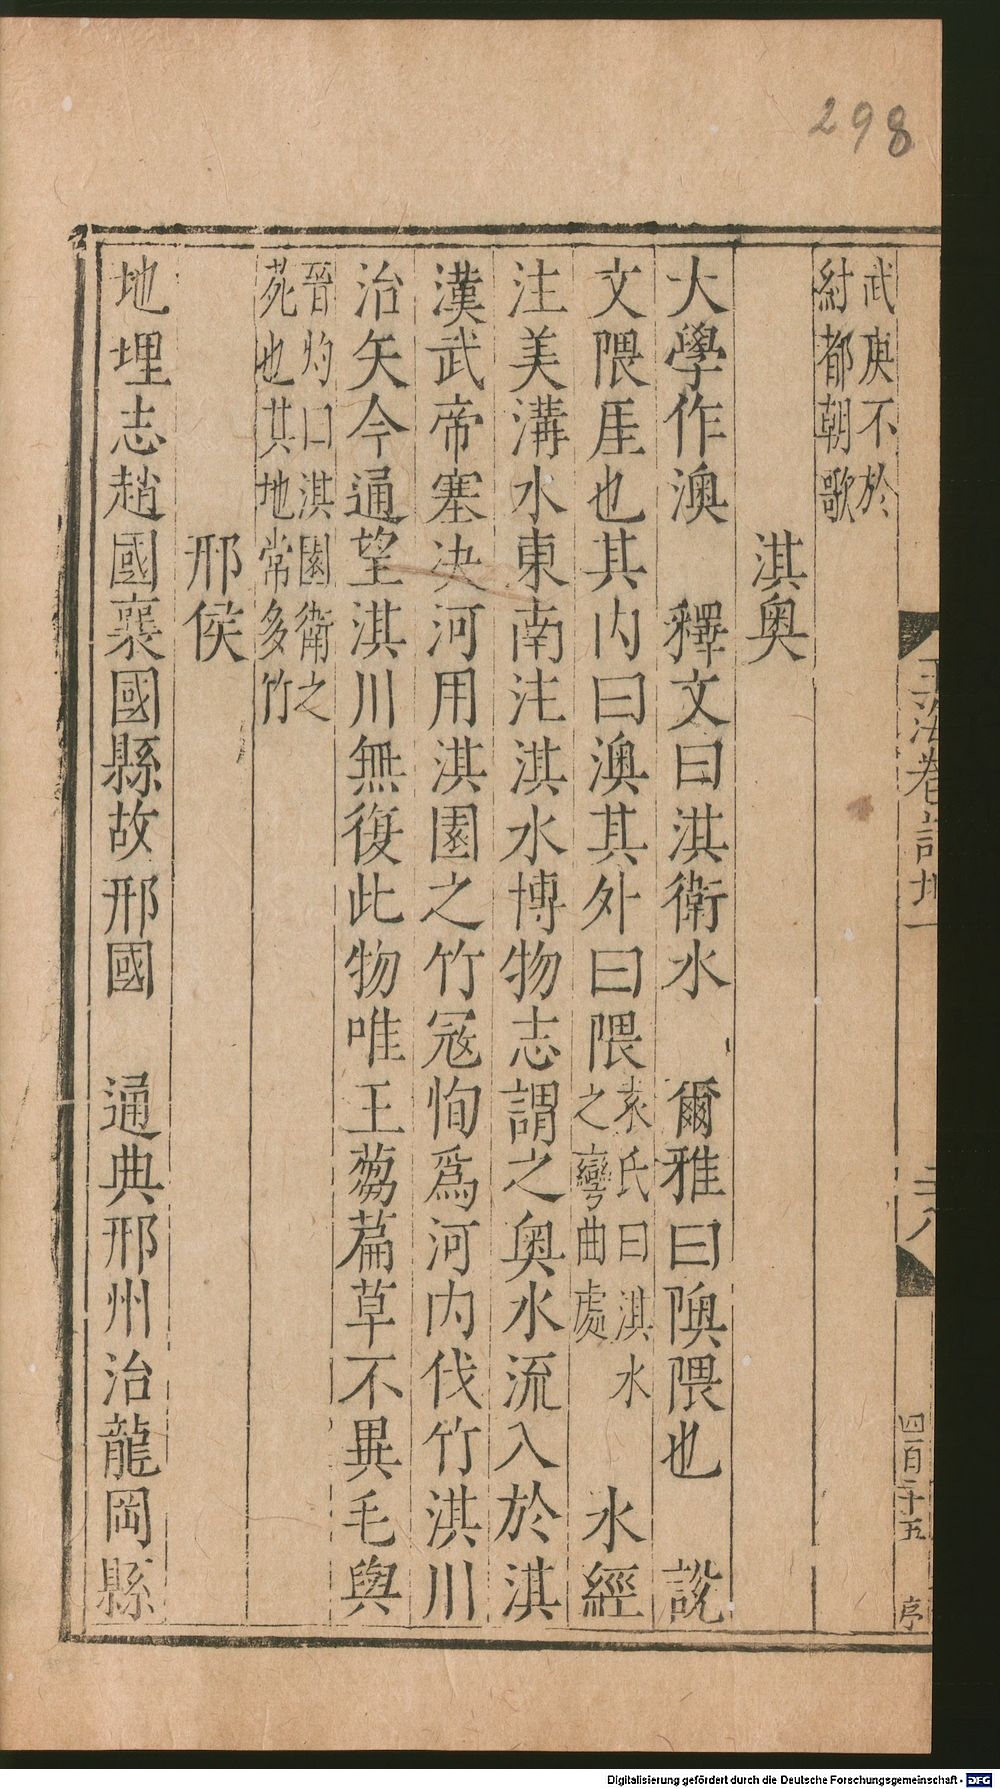 298
武庚不於
紂都朝歌
淇奧
大學作澳　釋文曰淇衛水　爾雅曰隩隈也　說
文隈厓也其内曰澳其外曰隈
袁氏曰淇水
之彎曲處
水經
注美溝水東南注淇水博物志謂之奥水流入於淇
漢武帝塞决河用淇園之竹冦恂爲河内伐竹淇川
治矢今通望淇川無復此物唯王芻萹草不異毛與
晉灼曰淇園衛之
苑也其地常多竹
邢侯
地埋志趙國襄國縣故邢國　通典邢州治龍岡縣
四百二十五
序
Digitalisierung gefördert durch die Deutsche Forschungsgemeinschaft - DFG